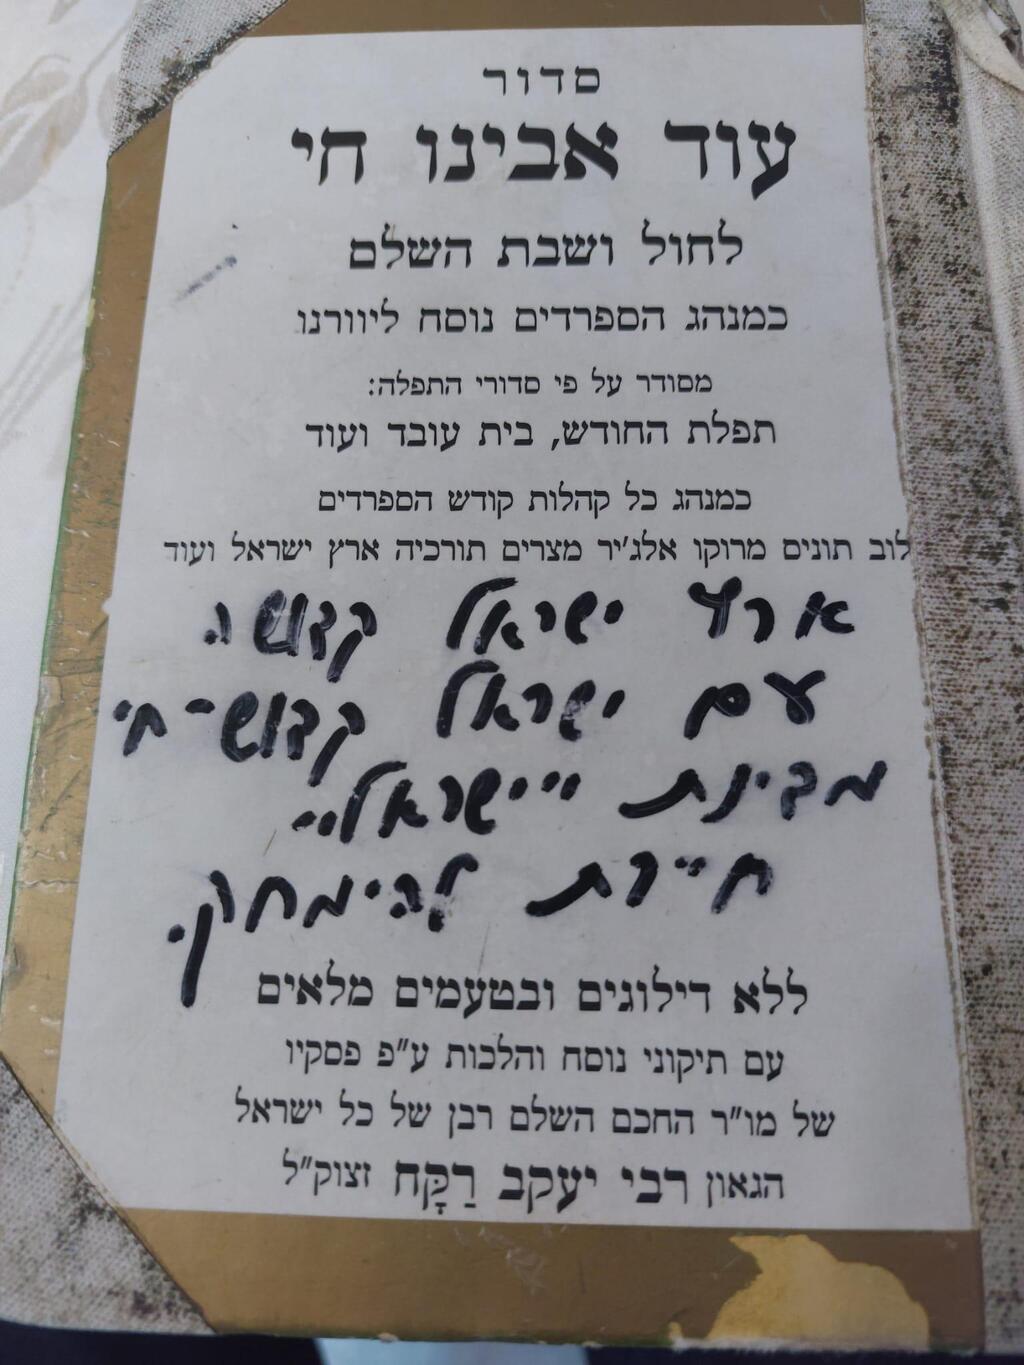 סדור
עוד אבינו חי
לחול ושבת השלם
כמנהג הספרדים נוסח ליוורנו
מסודר על פי סדורי התפלה:
תפלת החודש, בית עובד ועוד
כמנהג כל קהלות קודש הספרדים
לוב תונים מרוקו אלג'יר מצרים תורכיה ארץ ישראל ועוד
ארץ ישראל קדושה.
עם ישראל קדוש-חי
מדינת "ישראל"
חייבת להימחק.
ללא דילוגים ובטעמים מלאים
עם תיקוני נוסח והלכות ע"פ פסקיו
של מו"ר החכם השלם רבן של כל ישראל
הגאון רבי יעקב רַקָּח זצוק"ל